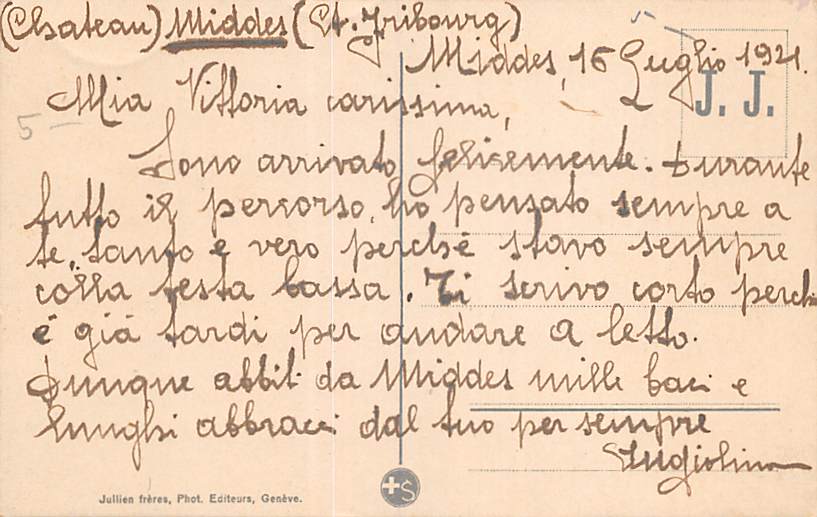 (Chateau) Middes (Ct. Fribourg)
Middes, 16 Luglio 1921.
J. J.
Mia Vittoria carissima,
5 —
Sono arrivato felicemente. Durante
tutto il percorso, ho pensato sempre a
te, tanto è vero perchè stavo sempre
colla testa bassa. Ti scrivo corto perchè
é già tardi per andare a letto.
Dunque abbiti da Middes mille baci e
lunghi abbracci dal tuo per sempre
Jullien frères, Phot. Editeurs, Genève.
+S